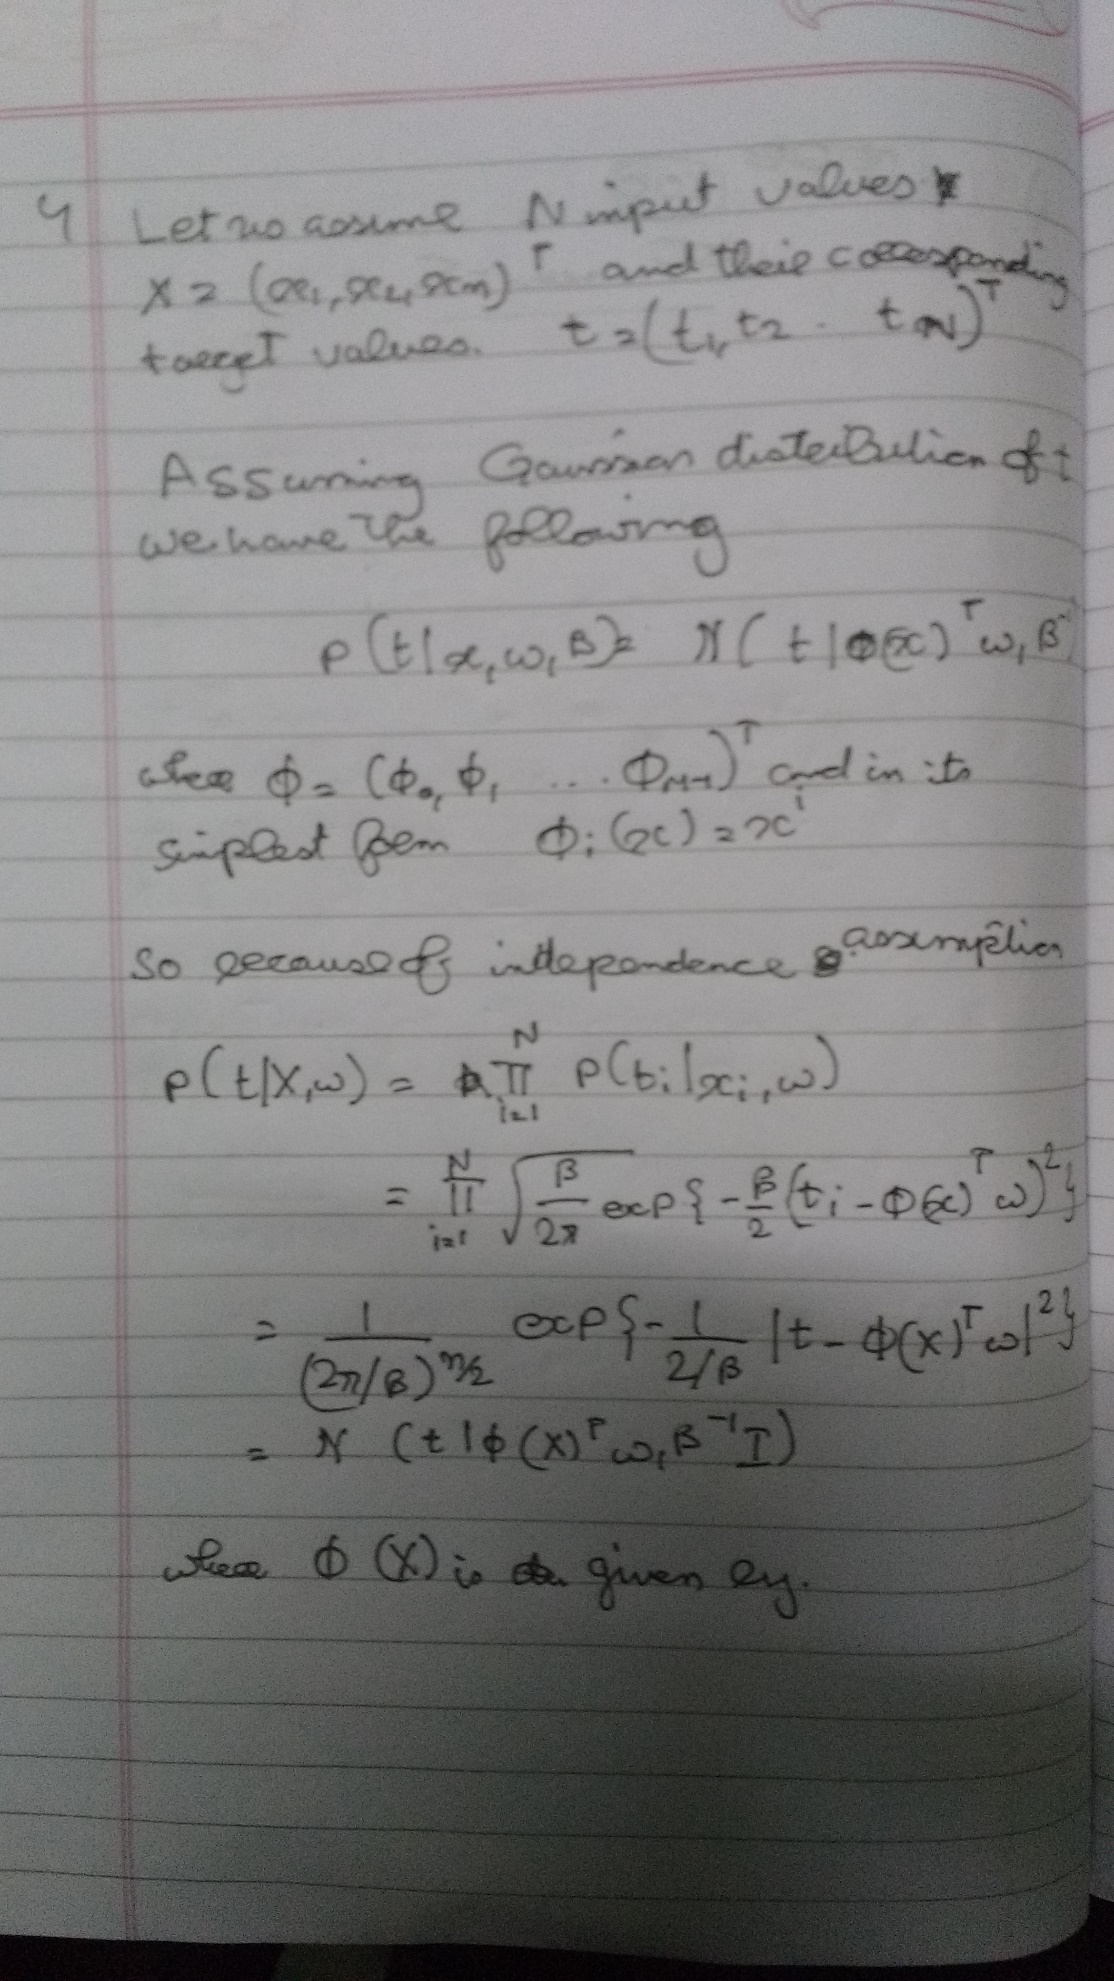 4 Let us assume N input values
X = (x₁, x₂, xₘ)ᵀ and their corresponding
target values. t = (t₁, t₂ . t_N)ᵀ
Assuming Gaussian distribution of t
we have the following
P(t|x, ω, β) = N(t|Φ(x)ᵀω, β⁻¹)
where ϕ = (ϕ₀, ϕ₁ ... Φ_M-1)ᵀ and in its
simplest form Φᵢ(x) = xⁱ
So because of independence assumption
P(t|X, ω) = ∏ᵢ₌₁ᴺ P(tᵢ|xᵢ, ω)
= ∏ᵢ₌₁ᴺ √(β/2π) exp{-β/2 (tᵢ - Φ(x)ᵀω)²}
= 1/(2π/β)^n/2 exp{-1/(2/β) |t - ϕ(X)ᵀω|²}
= N(t|ϕ(X)ᵀω, β⁻¹I)
where ϕ(X) is given by.